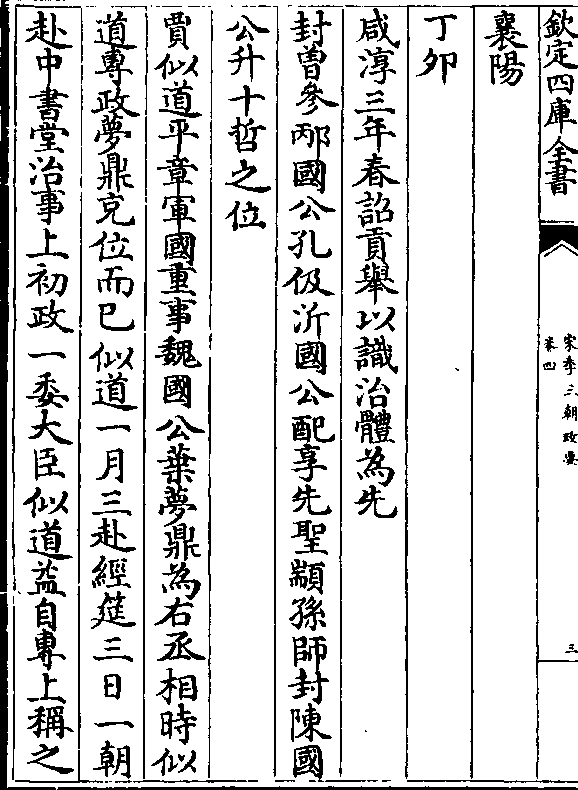 欽定四庫全書
宋季三朝政要
卷四
三
襄陽
丁卯
咸淳三年春詔貢舉以識治體為先
封曽參郕國公孔伋沂國公配享先聖顓孫師封陳國
公升十哲之位
賈似道平章軍國重事魏國公葉夢鼎為右丞相時似
道專政夢鼎充位而已似道一月三赴經筵三日一朝
赴中書堂治事上初政一委大臣似道益自專上稱之